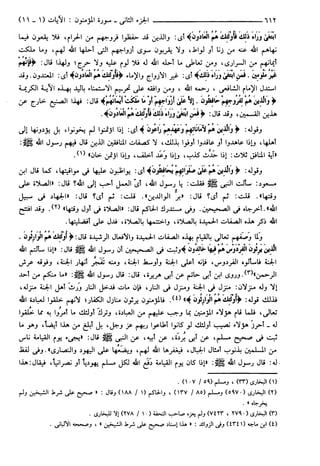 ٦١٢ الجزء الثاني - سورة المؤمنون : الآيات (١ - ١١)
ابتغى وراء ذلك فأولئك هم العادون﴾ أي: والذين قد حفظوا فروجهم من الحرام، فلا يقعون فيما
نهاهم الله عنه من زنا أو لواط، ولا يقربون سوى أزواجهم التي أحلها الله لهم، وما ملكت
أيمانهم من السراري، ومن تعاطى ما أحله الله له فلا لوم عليه ولا حرج؛ ولهذا قال: ﴿فإنهم
غير ملومين . فمن ابتغى وراء ذلك﴾ أي: غير الأزواج والإماء ﴿فأولئك هم العادون﴾ أي: المعتدون. وقد
استدل الإمام الشافعي، رحمه الله، ومن وافقه على تحريم الاستمناء باليد بهذه الآية الكريمة
﴿والذين هم لفروجهم حافظون . إلا على أزواجهم أو ما ملكت أيمانهم﴾ قال: فهذا الصنيع خارج عن
هذين القسمين، وقد قال: ﴿فمن ابتغى وراء ذلك فأولئك هم العادون﴾.
وقوله: ﴿والذين هم لأماناتهم وعهدهم راعون﴾ أي: إذا اؤتمنوا لم يخونوا، بل يؤدونها إلى
أهلها، وإذا عاهدوا أو عاقدوا أوفوا بذلك، لا كصفات المنافقين الذين قال فيهم رسول الله ﷺ:
«آية المنافق ثلاث: إذا حدّث كذب، وإذا وعد أخلف، وإذا اؤتمن خان» (١).
وقوله: ﴿والذين هم على صلواتهم يحافظون﴾ أي: يواظبون عليها في مواقيتها، كما قال ابن
مسعود: سألت النبي ﷺ فقلت: يا رسول الله، أيّ العمل أحب إلى الله؟ قال: «الصلاة على
وقتها». قلت: ثم أي؟ قال: «برّ الوالدين». قلت: ثم أي؟ قال: «الجهاد في سبيل
الله». أخرجاه في الصحيحين. وفي مستدرك الحاكم قال: «الصلاة في أول وقتها» (٢). وقد افتتح
الله ذكر هذه الصفات الحميدة بالصلاة، واختتمها بالصلاة، فدل على أفضليتها.
ولما وصفهم تعالى بالقيام بهذه الصفات الحميدة والأفعال الرشيدة قال: ﴿أولئك هم الوارثون .
الذين يرثون الفردوس هم فيها خالدون﴾ وثبت في الصحيحين أن رسول الله ﷺ قال: «إذا سألتم الله
الجنة فاسألوه الفردوس، فإنه أعلى الجنة وأوسط الجنة، ومنه تفجّر أنهار الجنة، وفوقه عرش
الرحمن» (٣). وروى ابن أبي حاتم عن أبي هريرة، قال: قال رسول الله ﷺ: «ما منكم من أحد
إلا وله منزلان: منزل في الجنة ومنزل في النار، فإن مات فدخل النار ورّث أهل الجنة منزله،
فذلك قوله: ﴿أولئك هم الوارثون﴾» (٤). فالمؤمنون يرثون منازل الكفار؛ لأنهم خلقوا لعبادة الله
تعالى، فلما قام هؤلاء المؤمنون بما وجب عليهم من العبادة، وترك أولئك ما أمروا به مما خلقوا
له - أحرز هؤلاء نصيب أولئك لو كانوا أطاعوا ربهم عز وجل، بل أبلغ من هذا أيضاً، وهو ما
ثبت في صحيح مسلم، عن أبي بردة، عن أبيه، عن النبي ﷺ قال: «يجيء يوم القيامة ناس
من المسلمين بذنوب أمثال الجبال، فيغفرها الله لهم، ويضعها على اليهود والنصارى». وفي لفظ
له: قال رسول الله ﷺ: «إذا كان يوم القيامة دفع الله لكل مسلم يهودياً أو نصرانياً، فيقال: هذا
(١) البخاري (٣٣) ، ومسلم (٥٩ / ١٠٧) .
(٢) البخاري (٥٩٧٠) ومسلم (٨٥ / ١٣٧) ، والحاكم (١ / ١٨٨) وقال : « صحيح على شرط الشيخين ولم
يخرجاه » .
(٣) البخاري (٢٧٩٠ ، ٧٤٢٣) ولم يعز صاحب التحفة (١٠ / ٢٧٨) إلا للبخاري .
(٤) ابن ماجه (٤٣٤١) وفى الزوائد : « هذا إسناد صحيح على شرط الشيخين » ، وصححه الألبانى .